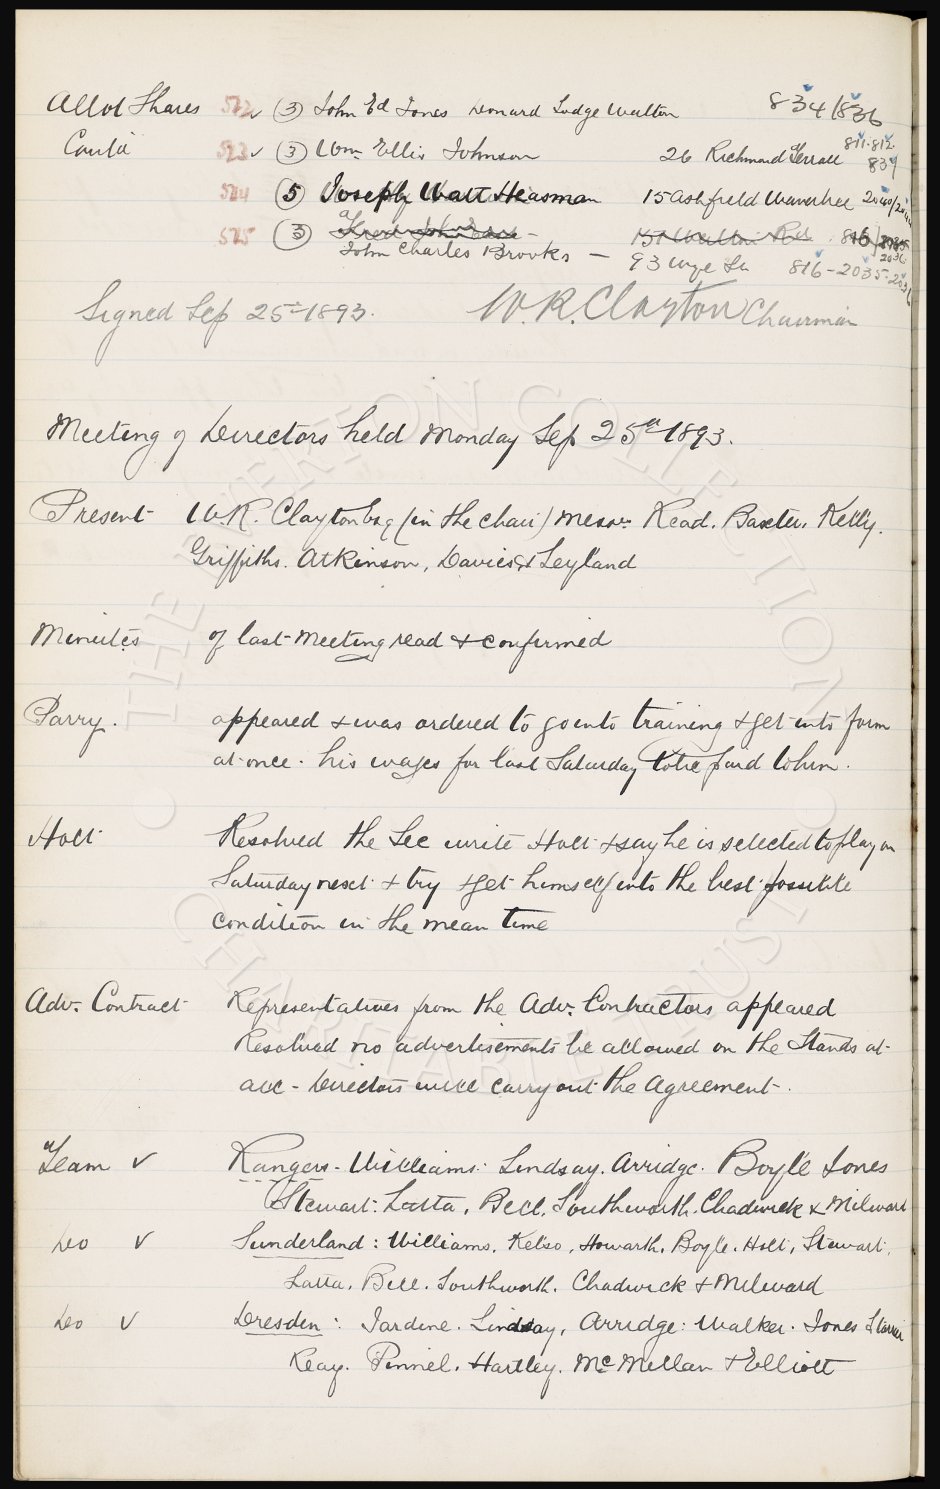 Allot Shares 522 (3) John Ed Jones Leonard Lodge Walton 834/836
Contd 523 (3) Wm. Ellis Johnson 26 Richmond Terrace 811.812 837
524 (5) Joseph Watt Heasman 15 Ashfield Wavertree
525 (3) Fred John 151 Walton Rd. 816
John Charles Brooks — 93 Wye St 816-2035-2036
Signed Sep 25th 1893. W.R. Clayton Chairman
Meeting of Directors held Monday Sep 25th 1893.
Present W.R. Clayton Esq (in the chair) Messrs Read. Baxter, Kelly.
Griffiths. Atkinson, Davies & Leyland
Minutes of last Meeting read & confirmed
Parry. appeared & was ordered to go into training & get into form
at once. his wages for last Saturday to be paid to him.
Holt Resolved the Sec write Holt & say he is selected to play on
Saturday next & try & get himself into the best possible
condition in the mean time
Adv. Contract Representatives from the Adv. Contractors appeared
Resolved no advertisements be allowed on the Stands at
all - Directors will carry out the Agreement.
Team ✓ Rangers - Williams: Lindsay. Arridge. Boyle Jones
Stewart: Latta, Bell, Southworth. Chadwick & Milward
Do ✓ Sunderland: Williams. Kelso, Howarth. Boyle. Holt, Stewart.
Latta. Bell. Southworth. Chadwick & Milward
Do ✓ Dresden: Jardine. Lindsay, Arridge: Walker. Jones
Keay. Pinnel. Hartley. McMillan & Elliott
THE EVERTON COLLECTION CHARITABLE TRUST